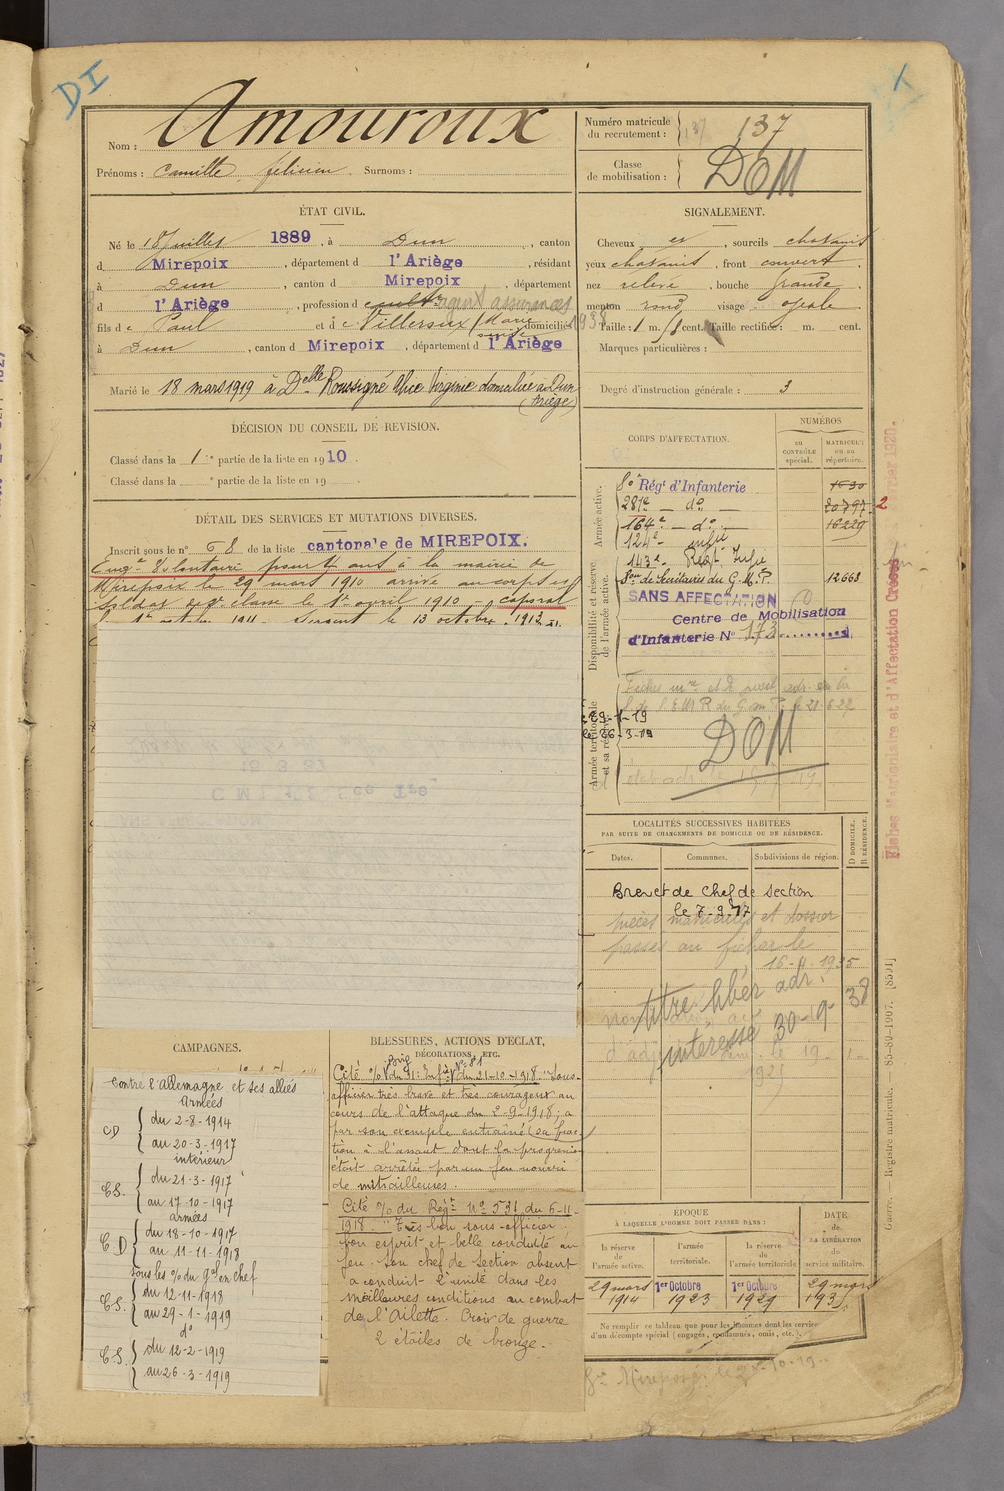 DI
Nom : Amouroux
Prénoms : Camille félicien . Surnoms :
Numéro matricule du recrutement : 137
Classe de mobilisation : DOM
ÉTAT CIVIL.
Né le 18 Juillet 1889 , à Dun , canton
d Mirepoix , département d l'Ariège , résidant
à Dun , canton d Mirepoix , département
d l'Ariège , profession d cult agent assurances
fils de Paul et de Villeroux Marie domiciliés 1938
à Dun , canton d Mirepoix , département d l'Ariège
Marié le 18 mars 1919 à Delle Roussigné Alice Virginie domiciliée à Dun
(Ariège)
SIGNALEMENT.
Cheveux et , sourcils chatains
yeux chatains , front couvert ,
nez relevé , bouche grande ,
menton rond , visage ovale
Taille : 1 m. cent. Taille rectifiée : m. cent.
Marques particulières :
Degré d'instruction générale : 3
DÉCISION DU CONSEIL DE REVISION.
Classé dans la 1re partie de la liste en 1910 .
Classé dans la e partie de la liste en 19 .
DÉTAIL DES SERVICES ET MUTATIONS DIVERSES.
Inscrit sous le n° 68 de la liste cantonale de MIREPOIX.
Engé Volontaire pour 4 ans à la mairie de
Mirepoix le 29 mars 1910 arrivé au corps et
soldat de 2e classe le 1er avril 1910 – caporal
le 1er octobre 1911 – Sergent le 13 octobre 1912
CORPS D'AFFECTATION.
NUMÉROS
AU CONTRÔLE spécial.
MATRICULE ou au répertoire.
Armée active.
80e Régt d'Infanterie 1630
281e — do — 20797 2
164e — do — 16229
124e — infie
Disponibilité et réserve de l'armée active.
143e Régt Infie
Son de Secrétaires du G. M. P. 12668
SANS AFFECTATION
Centre de Mobilisation
d'Infanterie N° 173
Armée territoriale et sa réserve
29-1-19
le 26-3-19
DOM
Fiches Matriculaire et d'Affectation
LOCALITÉS SUCCESSIVES HABITÉES
PAR SUITE DE CHANGEMENTS DE DOMICILE OU DE RÉSIDENCE.
Dates. Communes. Subdivisions de région.
D DOMICILE. R RÉSIDENCE.
Brevet de Chef de section
le 7-9-
pièces matricules et dossier
passés au fichier le
16-4-1935
titre libér adr.
intéressé 30-9-38
CAMPAGNES.
Contre l'Allemagne et ses alliés
Armées
CD du 2-8-1914
au 20-3-1917
intérieur
CS. du 21-3-1917
au 17-10-1917
armées
CD du 18-10-1917
au 11-11-1918
sous les % du Gal en chef
CS. du 12-11-1918
au 29-1-1919
do
CS. du 12-2-1919
au 26-3-1919
BLESSURES, ACTIONS D'ÉCLAT,
DÉCORATIONS, ETC.
Cité % du 31e Infie No 81 du 21-10-1918 "Sous-
officier très brave et très courageux au
cours de l'attaque du 2-9-1918; a
par son exemple entraîné sa frac-
tion à l'assaut dont la progression
était arrêtée par un feu nourri
de mitrailleuses.
Cité % du Régt No 531 du 6-11-
1918. "Très bon sous-officier.
bon esprit et belle conduite au
feu. Son chef de section absent
a conduit l'unité dans les
meilleures conditions au combat
de l'Ailette. Croix de guerre
2 étoiles de bronze.
ÉPOQUE
À LAQUELLE L'HOMME DOIT PASSER DANS :
DATE de LA LIBÉRATION du service militaire.
la réserve de l'armée active.
l'armée territoriale.
la réserve de l'armée territoriale
29 mars 1914
1er Octobre 1923
1er Octobre 1929
29 mars
Ne remplir ce tableau que pour les hommes dont les services
d'un décompte spécial (engagés, condamnés, omis, etc.).
Guerre. — Registre matricule. — 85-80-1907. [8591]